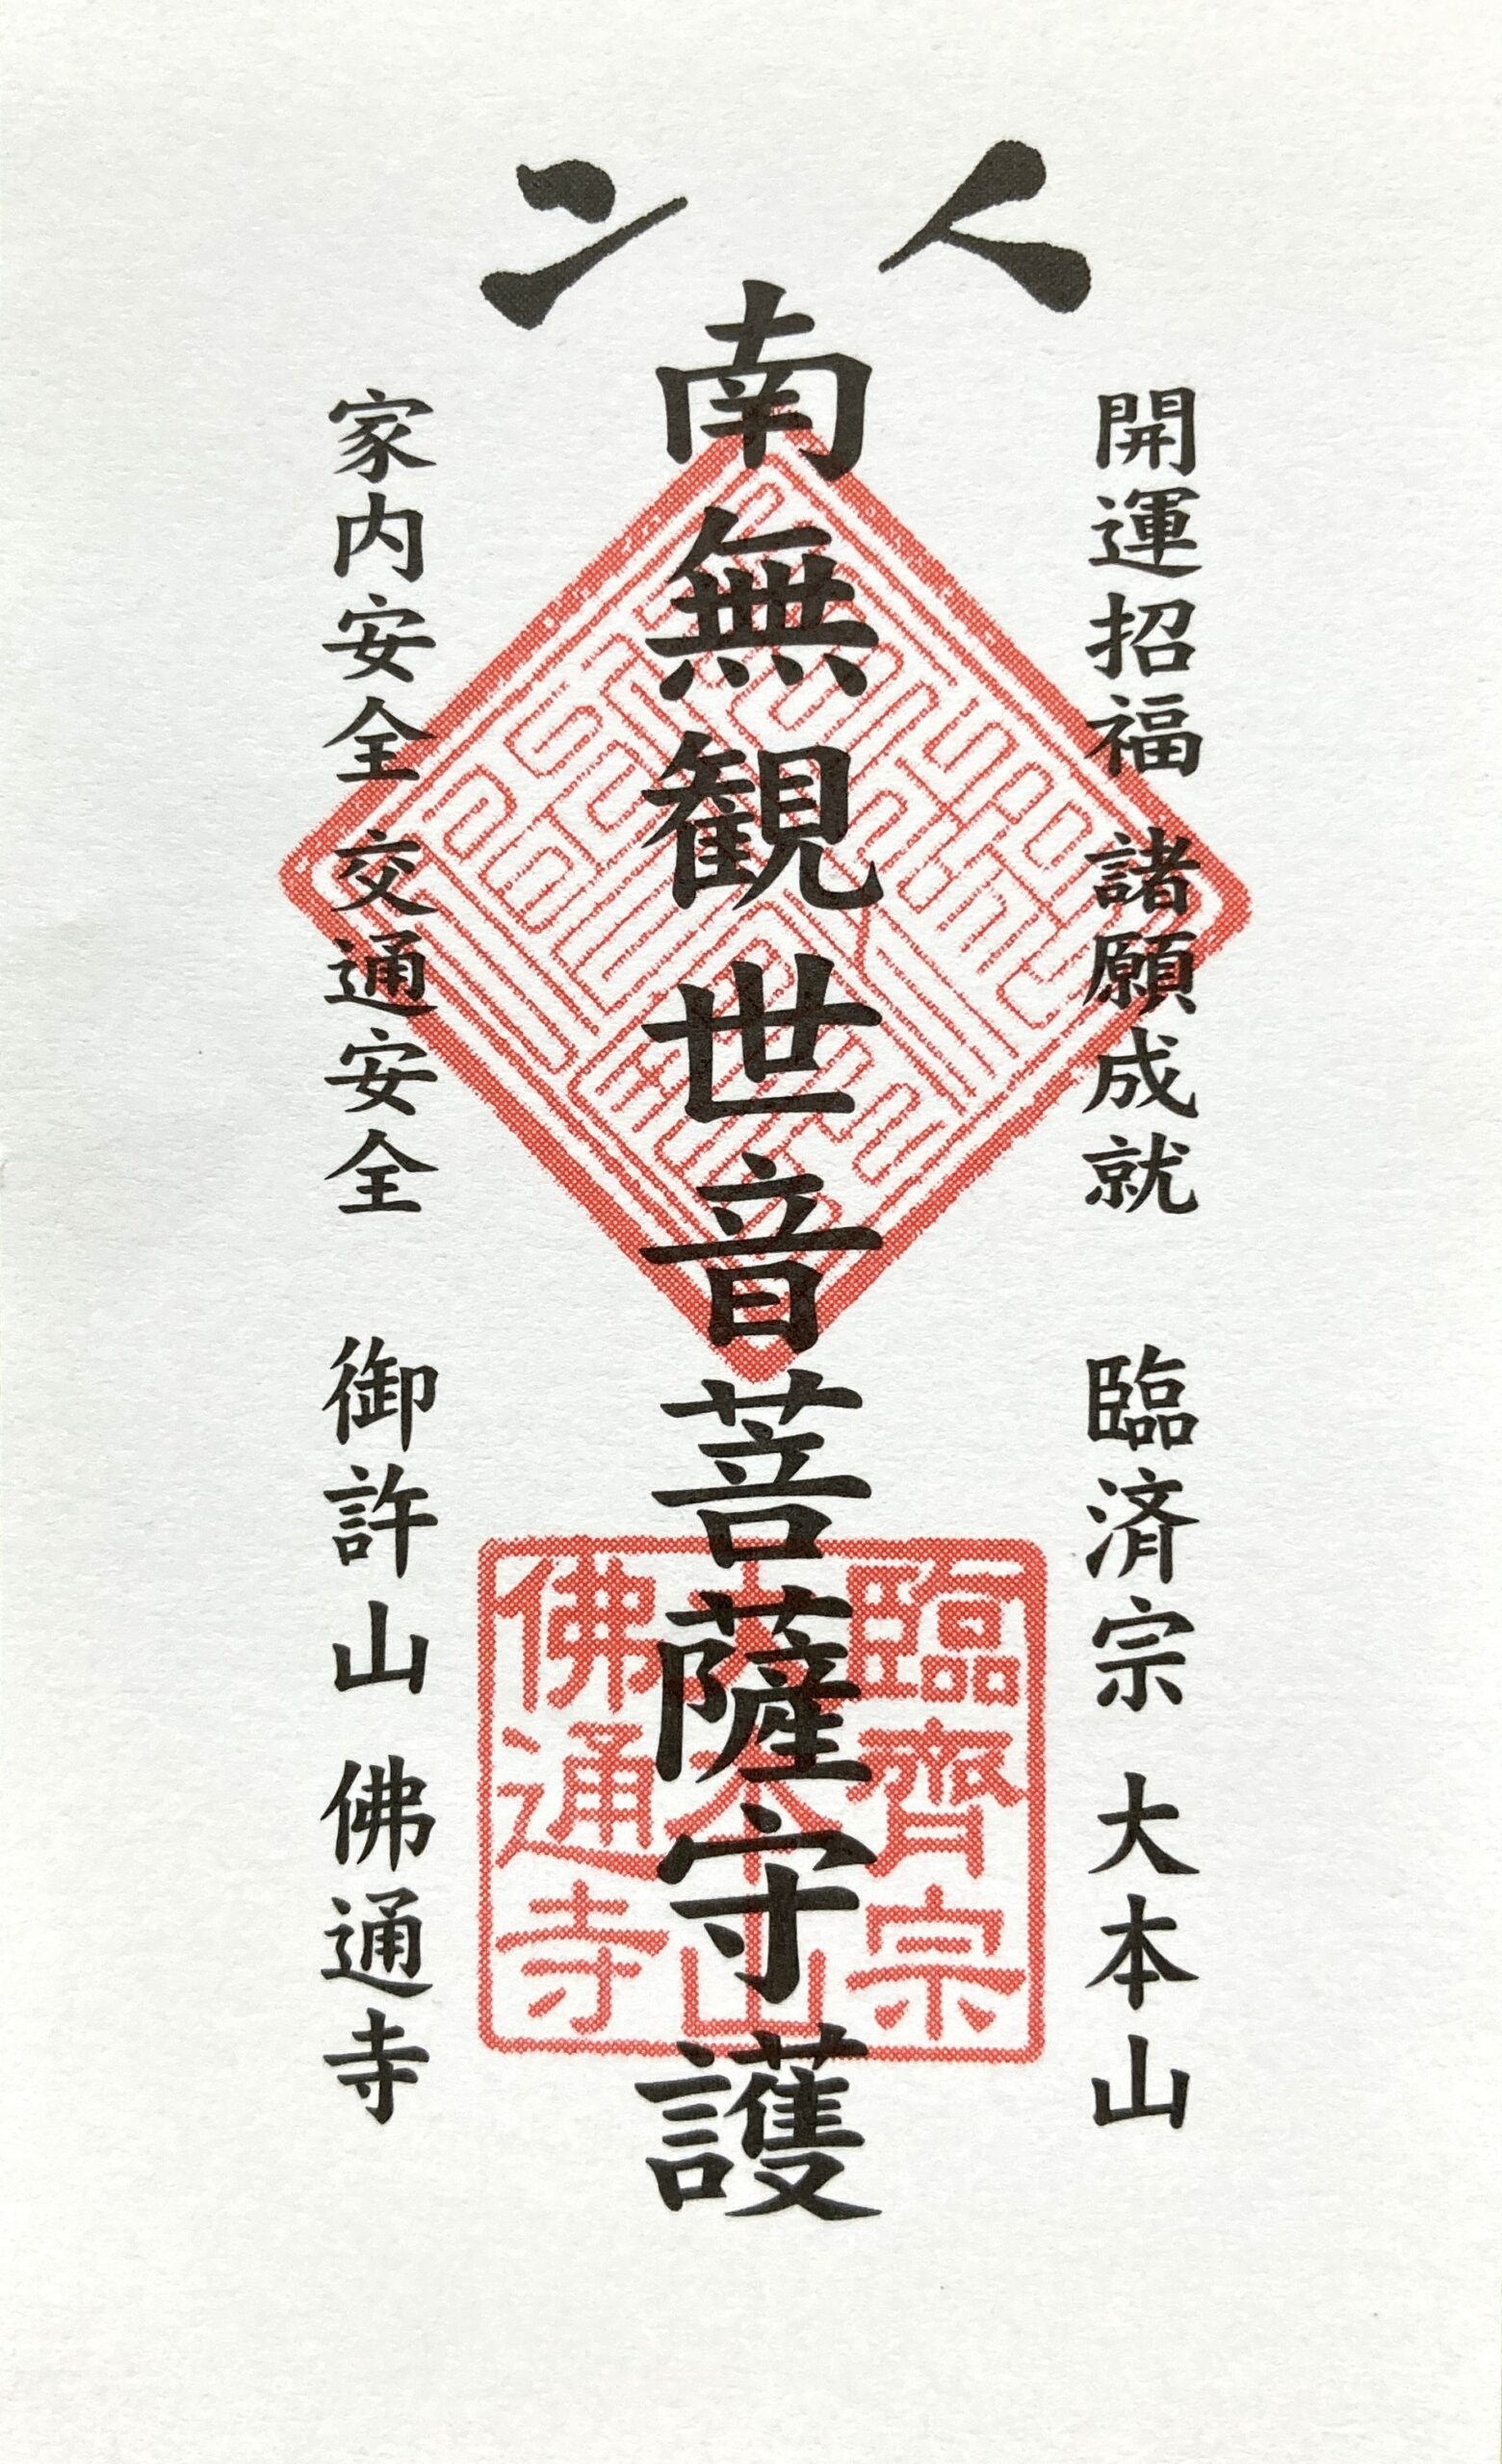 開運招福 諸願成就 臨済宗 大本山
南無観世音菩薩守護
家内安全 交通安全 御許山 佛通寺
臨齊宗
大本山
佛通寺